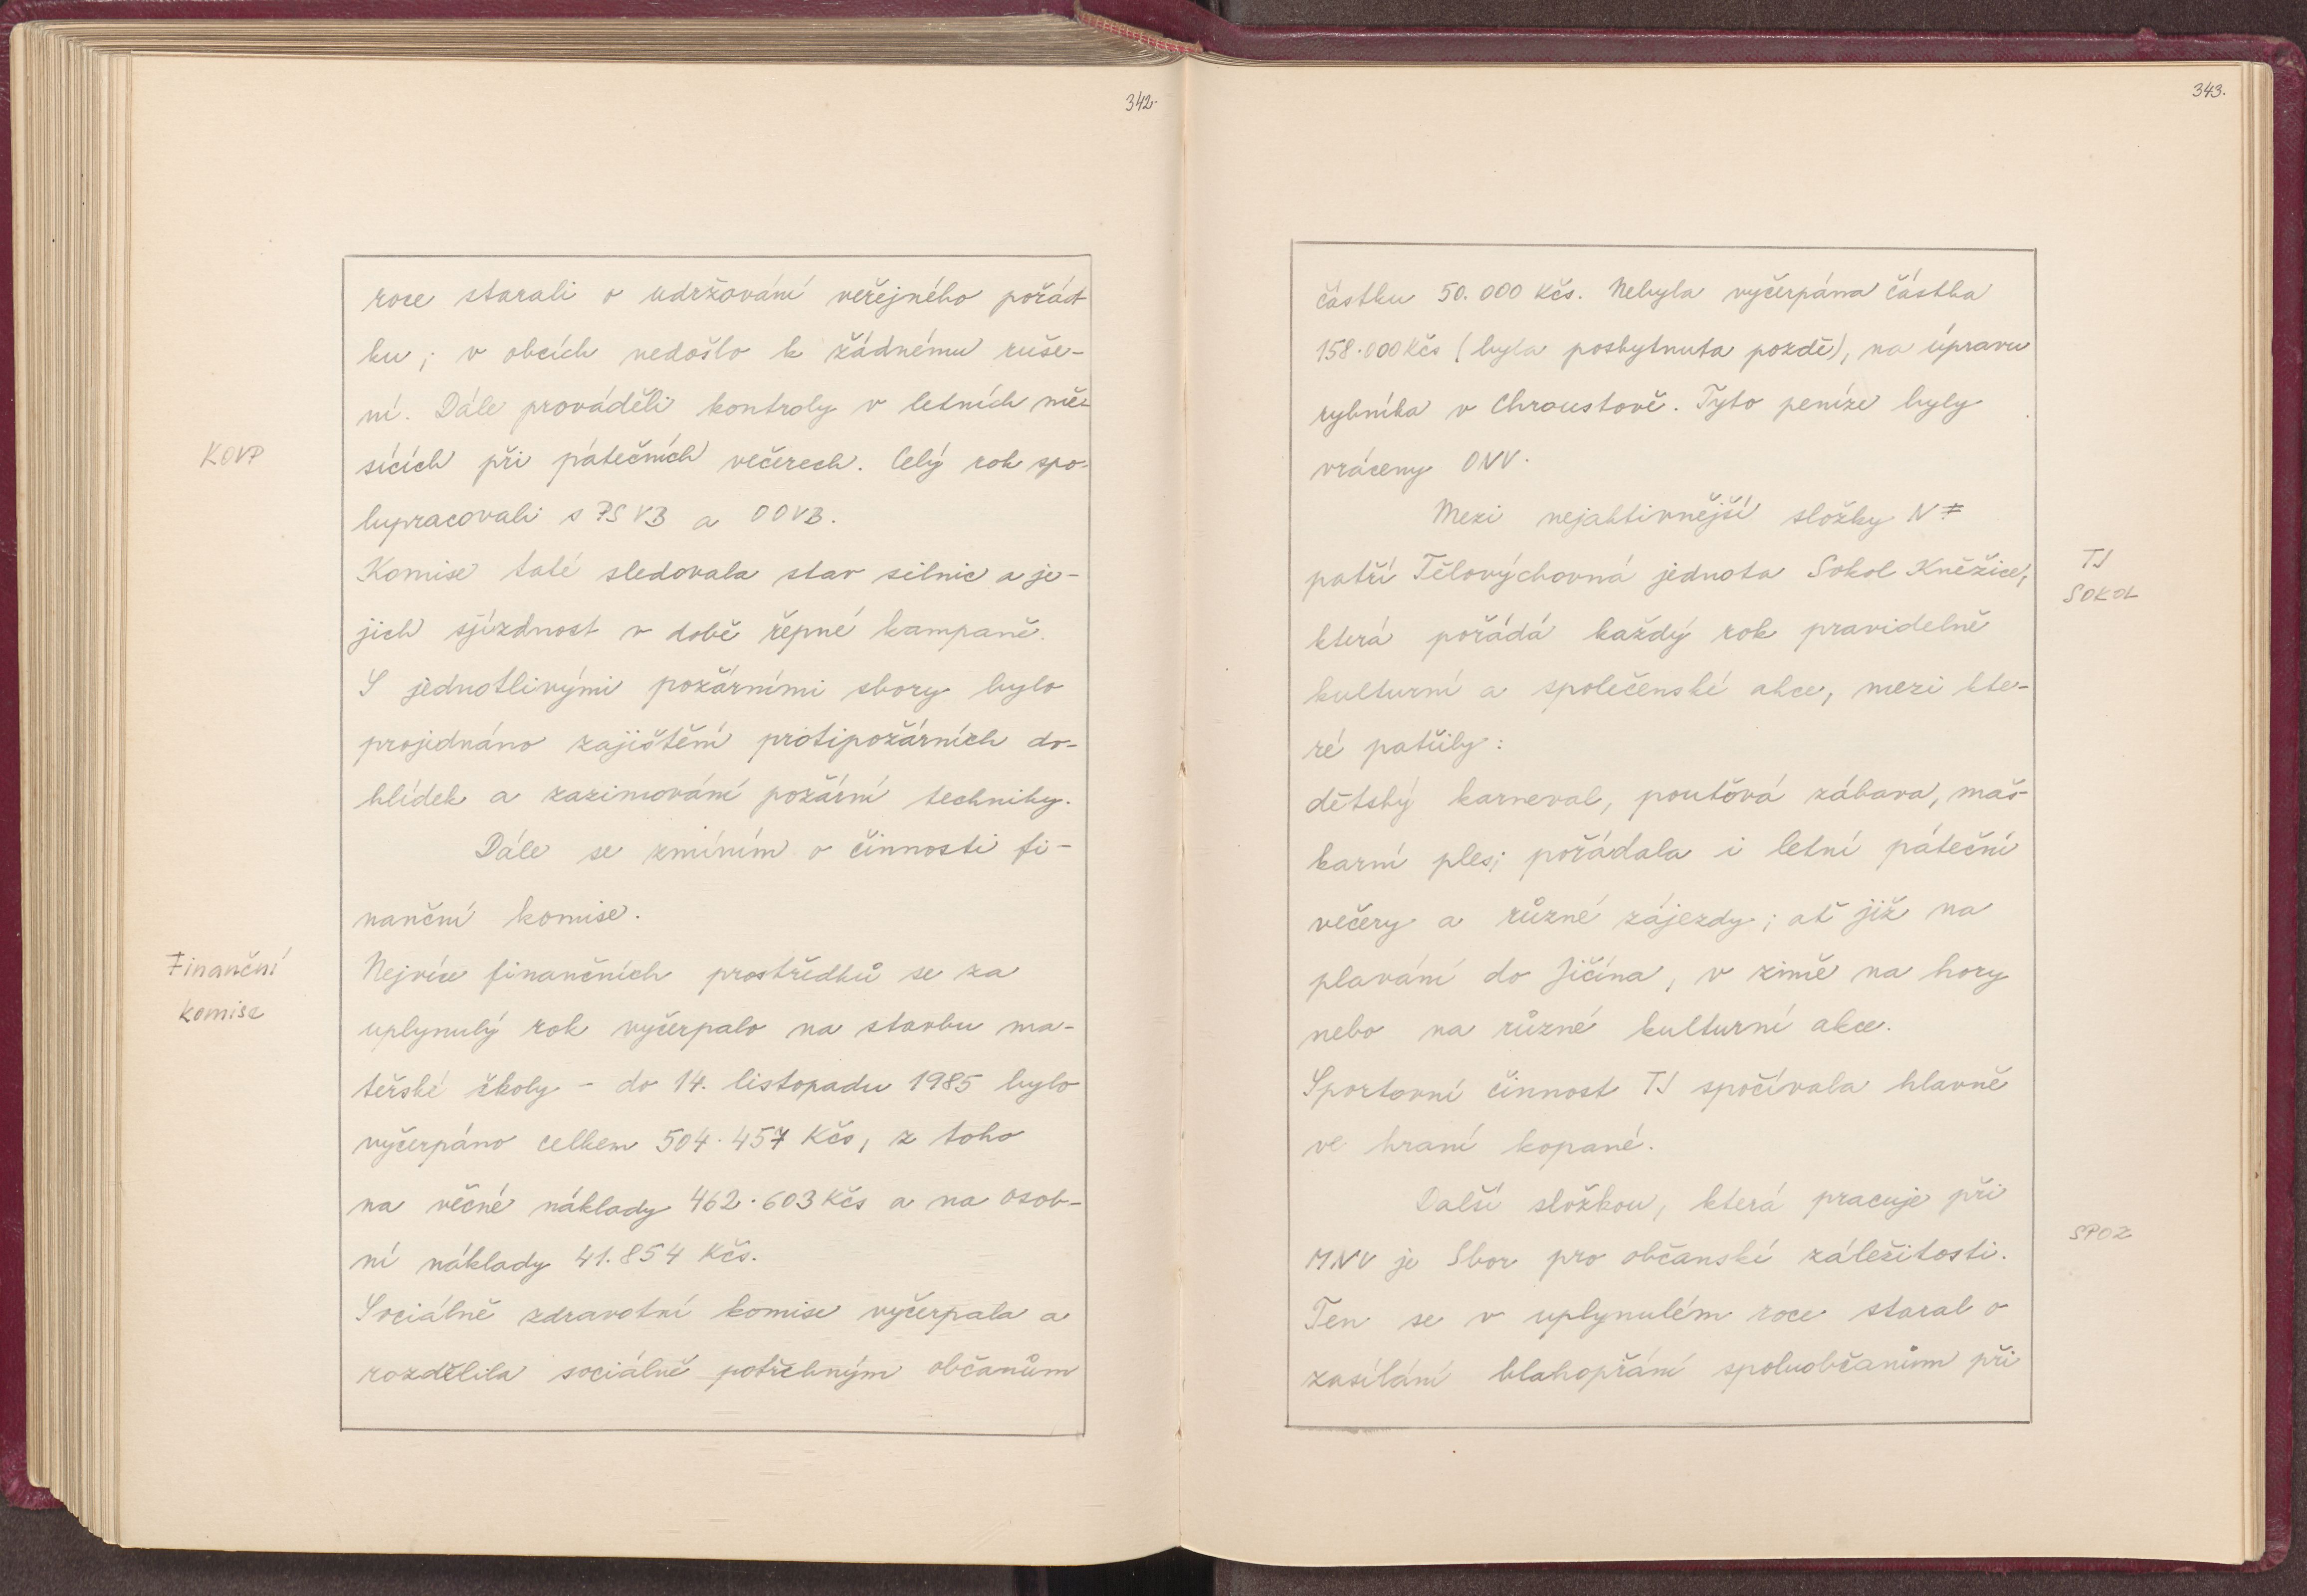 342.
roce starali o udržování veřejného pořád
ku; v obcích nedošlo k žádnému ruše-
ní. Dále prováděli kontroly v letních mě-
KOVP
sících při pátečních večerech. Celý rok spo-
lupracovali s PS VB a OOVB.
Komise také sledovala stav silnic a je-
jich sjízdnost v době řepné kampaně.
S jednotlivými požárními sbory bylo
projednáno zajištění protipožárních do-
hlídek a zazimování požární techniky.
Dále se zmíním o činnosti fi-
nanční komise.
Finanční
komise
Nejvíce finančních prostředků se za
uplynulý rok vyčerpalo na stavbu ma-
teřské školy - do 14. listopadu 1985 bylo
vyčerpáno celkem 504.457 Kčs, z toho
na věčné náklady 462.603 Kčs a na osob-
ní náklady 41.854 Kčs.
Sociálně zdravotní komise vyčerpala a
rozdělila sociálně potřebným občanům
343.
částku 50.000 Kčs. Nebyla vyčerpána částka
158.000 Kčs (byla poskytnuta pozdě), na úpravu
rybníka v Chroustově. Tyto peníze byly
vráceny ONV.
Mezi nejaktivnější složky NF
patří Tělovýchovná jednota Sokol Kněžice,
TJ
SOKOL
která pořádá každý rok pravidelně
kulturní a společenské akce, mezi kte-
ré patřily:
dětský karneval, pouťová zábava, maš-
karní ples; pořádala i letní páteční
večery a různé zájezdy; ať již na
plavání do Jičína, v zimě na hory
nebo na různé kulturní akce.
Sportovní činnost TJ spočívala hlavně
ve hraní kopané.
Další složkou, která pracuje při
SPOZ
MNV je Sbor pro občanské záležitosti.
Ten se v uplynulém roce staral o
zasílání blahopřání spoluobčanům při